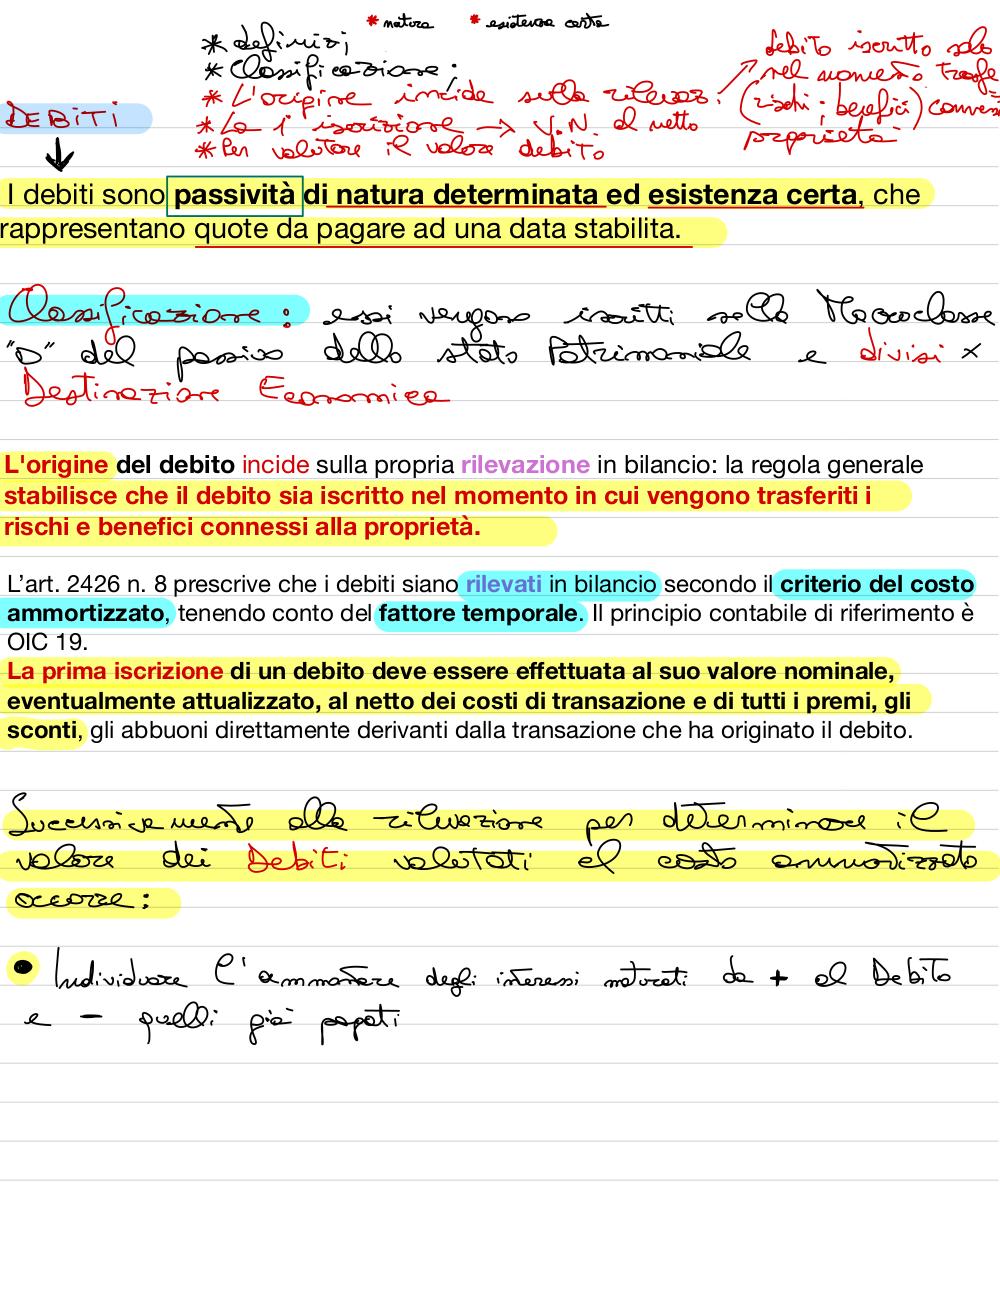 * natura * esistenza certa
* definizi
* Classificazione ;
* L'origine incide sulla rilevaz.
debito iscritto solo
nel momento trasfe
(rischi ; benefici) connessi
proprietà
DEBITI
* La 1° iscrizione → V.N. al netto
* Per valutare il valore debito
I debiti sono passività di natura determinata ed esistenza certa, che
rappresentano quote da pagare ad una data stabilita.
Classificazione : essi vengono iscritti nella Macroclasse
"D" del passivo dello stato Patrimoniale e divisi x
Destinazione Economica
L'origine del debito incide sulla propria rilevazione in bilancio: la regola generale
stabilisce che il debito sia iscritto nel momento in cui vengono trasferiti i
rischi e benefici connessi alla proprietà.
L'art. 2426 n. 8 prescrive che i debiti siano rilevati in bilancio secondo il criterio del costo
ammortizzato, tenendo conto del fattore temporale. Il principio contabile di riferimento è
OIC 19.
La prima iscrizione di un debito deve essere effettuata al suo valore nominale,
eventualmente attualizzato, al netto dei costi di transazione e di tutti i premi, gli
sconti, gli abbuoni direttamente derivanti dalla transazione che ha originato il debito.
Successivamente alla rilevazione per determinare il
valore dei Debiti valutati al costo ammortizzato
occorre :
• Individuare l'ammontare degli interessi maturati da + al Debito
e - quelli già pagati